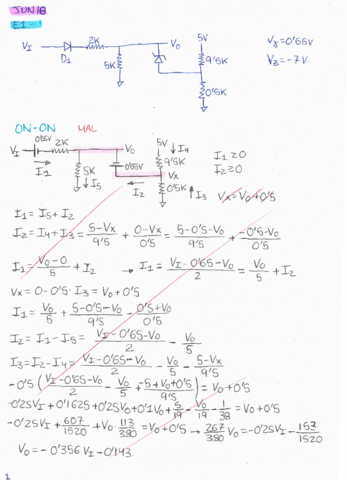 JUN18
E1
VI D1 2K 5K Vo 5V 9'5K 0'5K Vγ=0'65V
Vz=-7V.
ON-ON MAL
VI 0'65V 2K Vo 5V ↓I4
I1 5K ↓I5 0'65V I2 9'5K Vx 0'5K ↑I3
I1≥0
I2≥0
Vx=Vo+0'5
I1=I5+I2
I2=I4+I3=(5-Vx)/9'5+(0-Vx)/0'5=(5-0'5-Vo)/9'5+(-0'5-Vo)/0'5
I1=(Vo-0)/5+I2 → I1=(VI-0'65-Vo)/2=Vo/5+I2
Vx=0-0'5·I3=Vo+0'5
I1=Vo/5+(5-0'5-Vo)/9'5-(0'5+Vo)/0'5
I2=I1-I5=(VI-0'65-Vo)/2-Vo/5
I3=I2-I4=(VI-0'65-Vo)/2-Vo/5-(5-Vx)/9'5
-0'5((VI-0'65-Vo)/2-Vo/5+(-5+Vo+0'5)/9'5)=Vo+0'5
-0'25VI+0'1625+0'25Vo+0'1Vo+5/19-Vo/19-1/38=Vo+0'5
-0'25VI+607/1520+Vo·113/380=Vo+0'5→267/380Vo=-0'25VI-153/1520
Vo=-0'356VI-0'143
1